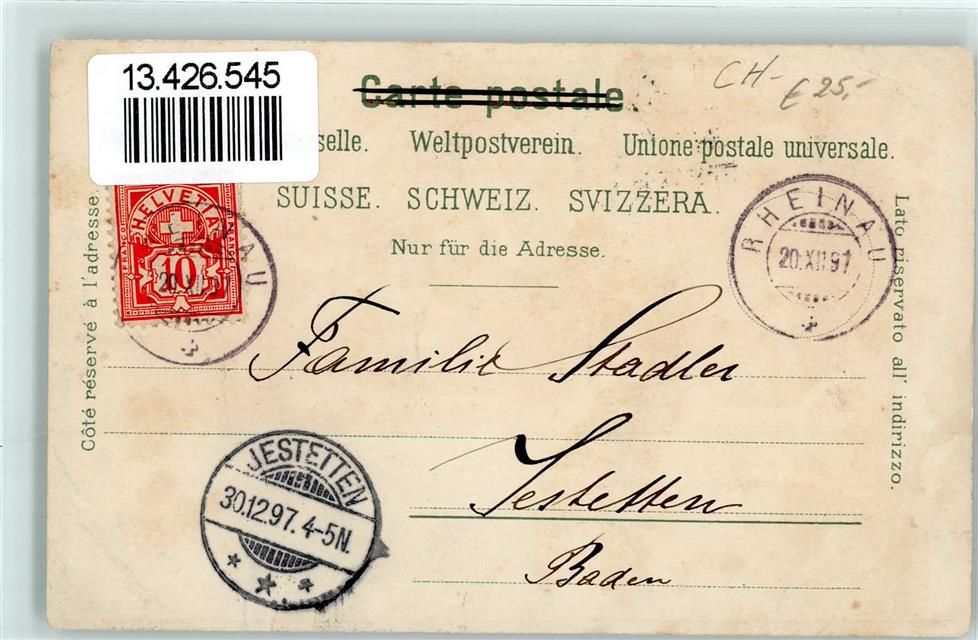 13.426.545
CH- € 25,-
Carte postale
selle. Weltpostverein. Unione postale universale.
SUISSE. SCHWEIZ. SVIZZERA.
Nur für die Adresse.
Côté réservé à l'adresse
Lato riservato all' indirizzo.
HELVETIA
FRANCO
10
RHEINAU
20.XII.97
Familie Stadler
JESTETTEN
30.12.97. 4-5N.
Jestetten
Baden